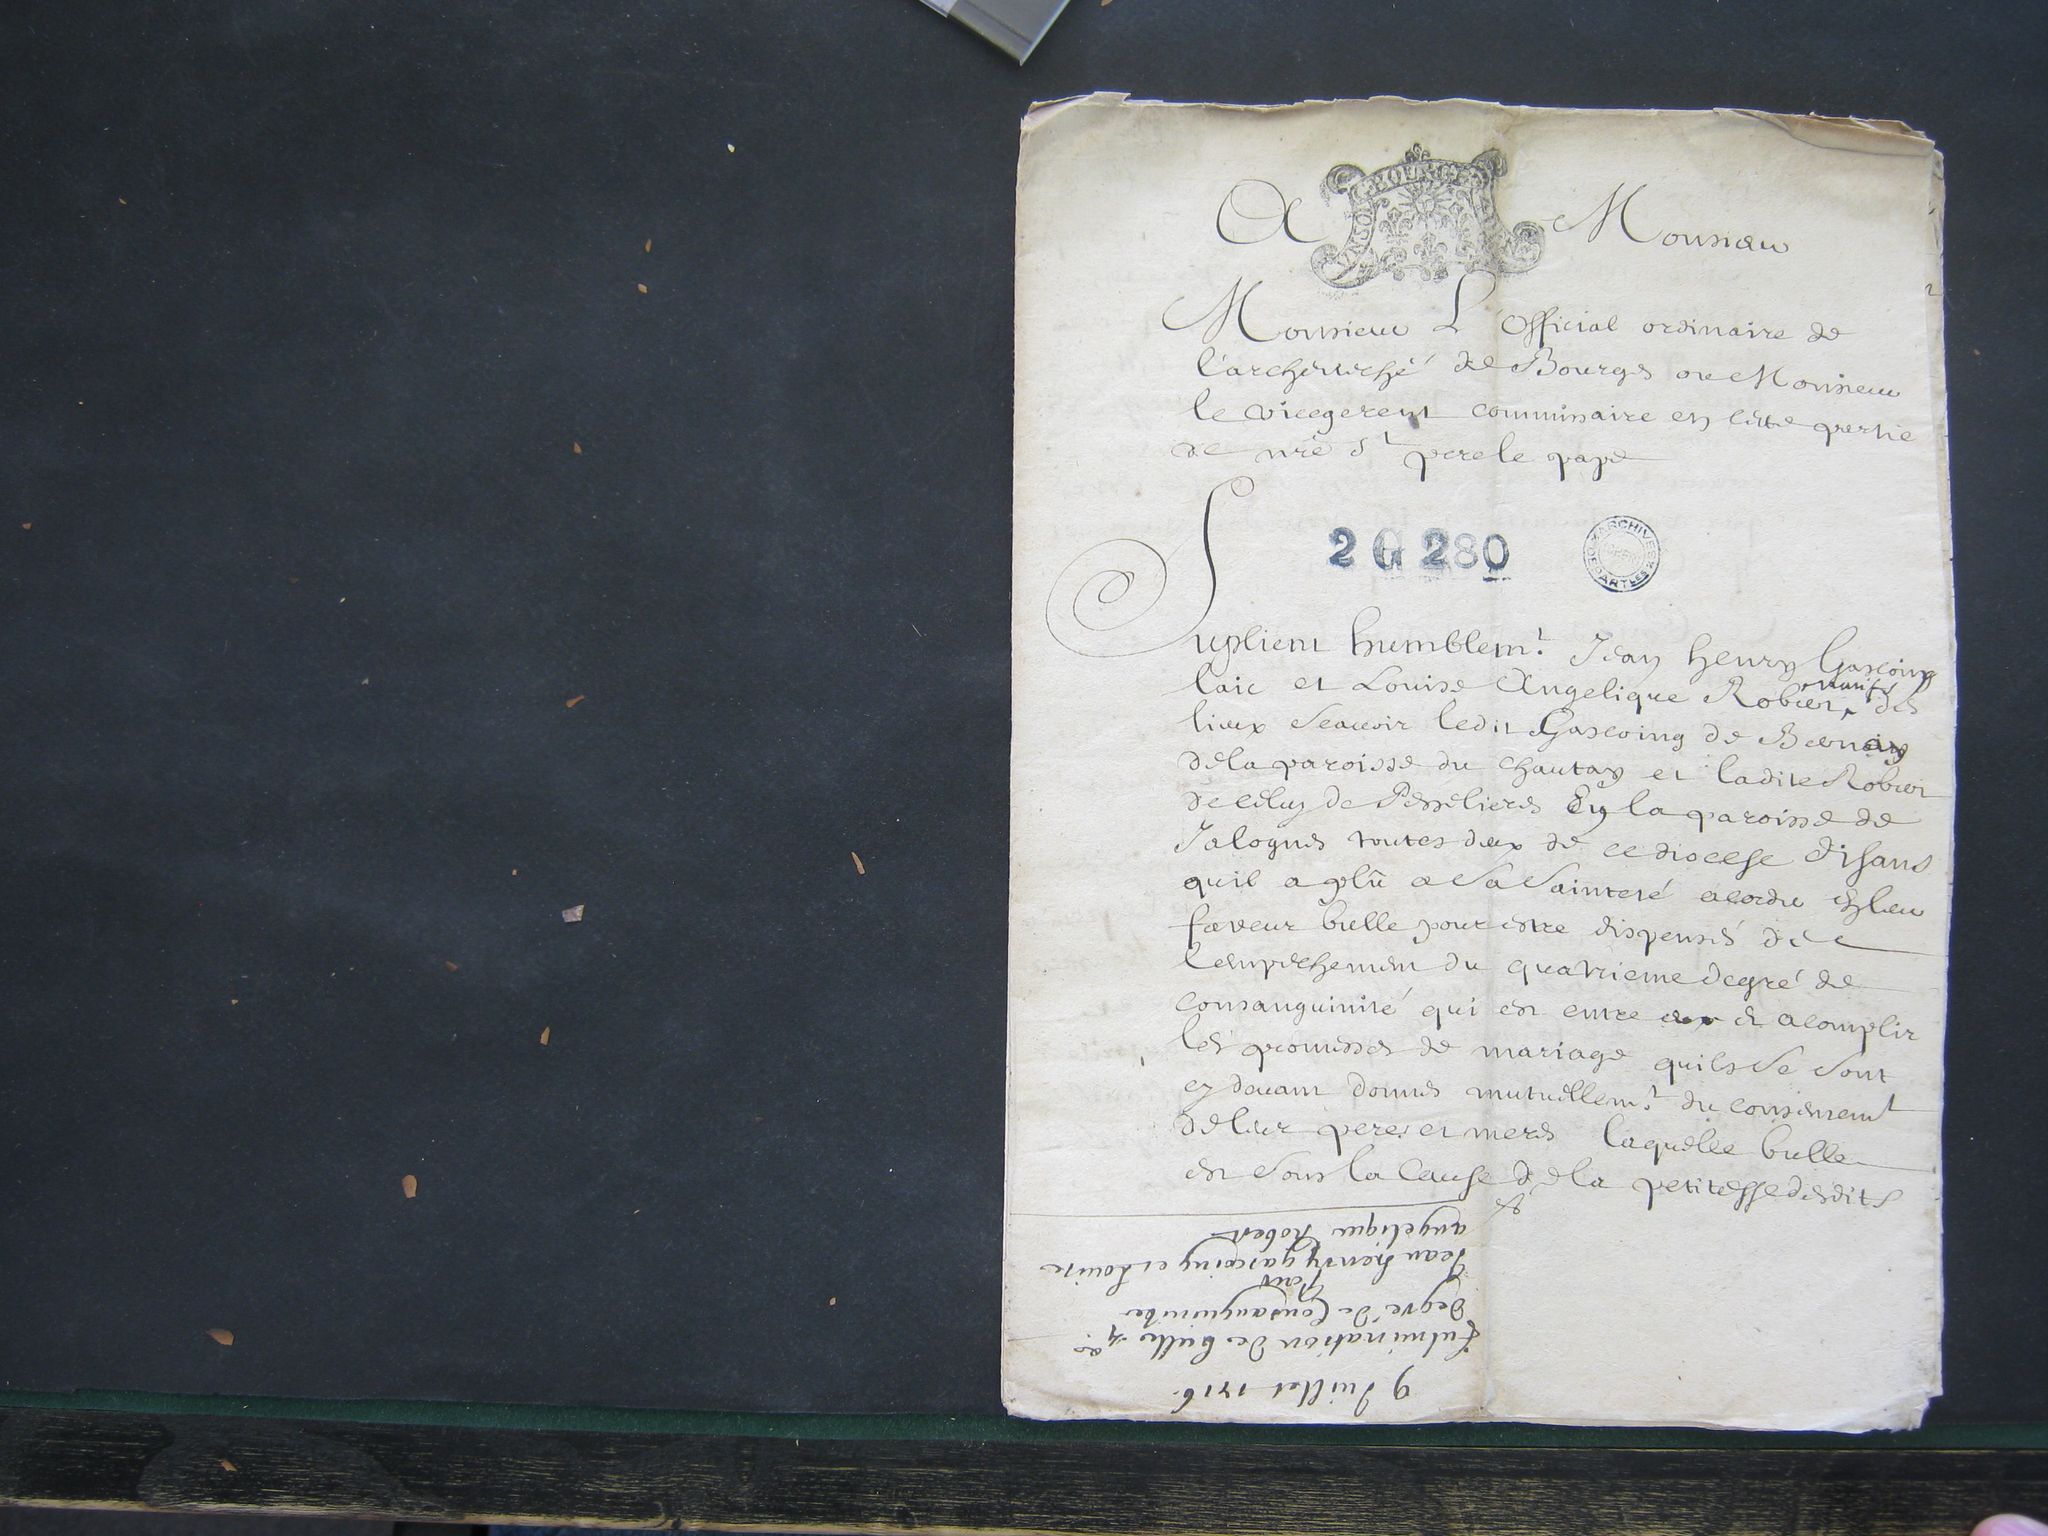 A Monsieur
Monsieur L'Official ordinaire de
l'archeveché de Bourges ou Monsieur
le vicegerent commissaire en cette partie
de nre St pere le pape
2 G 280
ARCHIVES DEPARTLES
Suplient humblemt. Jean Henry Gascoing
laic et Louise Angelique Robert natifs des
lieux scavoir ledit Gascoing de Bernay
de la paroisse du chautay et ladite Robert
de celuy de Pesselieres En la paroisse de
Jalognes toutes deux de ce diocese disans
quil a plû a Sa Sainteté acorder en leur
faveur bulle pour estre dispensés de
l'empechement du quatrieme degré de
consanguinité qui est entre eux et acomplir
les promesses de mariage quils se sont
cy devant donnés mutuellemt. du consentemt
de leur peres et meres laquelle bulle
est sous la Cause de la petitesse desdits
9 Juillet 1716.
Fulmination de bulle 4e
degré de Consanguinité
Pour
Jean henry gascoing et Louise
angelique Robert